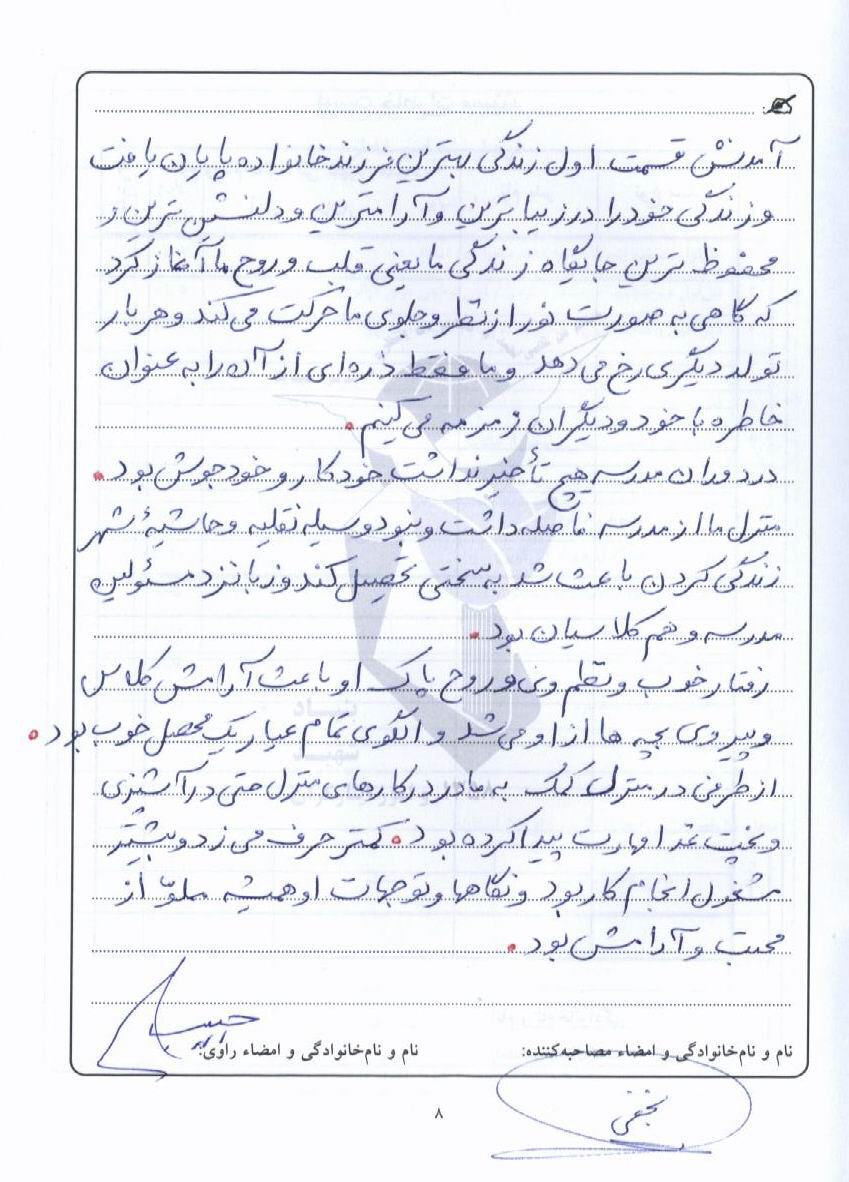 آمدنش قسمت اول زندگی بهترین فرزند خانواده پایان یافت
و زندگی خود را در زیباترین و آرامترین و دلنشین ترین و
محفوظ ترین جایگاه زندگی ما یعنی قلب و روح ما آغاز کرد
که گاهی به صورت نور از نظر و جلوی ما حرکت می کند و هر بار
تولد دیگری رخ می دهد و ما فقط ذره ای از آن را به عنوان
خاطره با خود و دیگران زمزمه می کنیم.
در دوران مدرسه هیچ تأخیر نداشت خودکار و خودجوش بود.
منزل ما از مدرسه فاصله داشت و نبود وسیله نقلیه و حاشیهٔ شهر
زندگی کردن باعث شد به سختی تحصیل کند و زبانزد مسئولین
مدرسه و هم کلاسیان بود.
رفتار خوب و نظم وی و روح پاک او باعث آرامش کلاس
و پیروی بچه ها از او می شد و الگوی تمام عیار یک محصل خوب بود.
از طرفی در منزل کمک به مادر در کارهای منزل حتی در آشپزی
و پخت غذا مهارت پیدا کرده بود. کمتر حرف می زد و بیشتر
مشغول انجام کار بود و نگاهها و توجهات او همیشه مملوّ از
محبت و آرامش بود.
نام و نام‌خانوادگی و امضاء مصاحبه‌کننده: نام و نام‌خانوادگی و امضاء راوی:
نجفی
۸